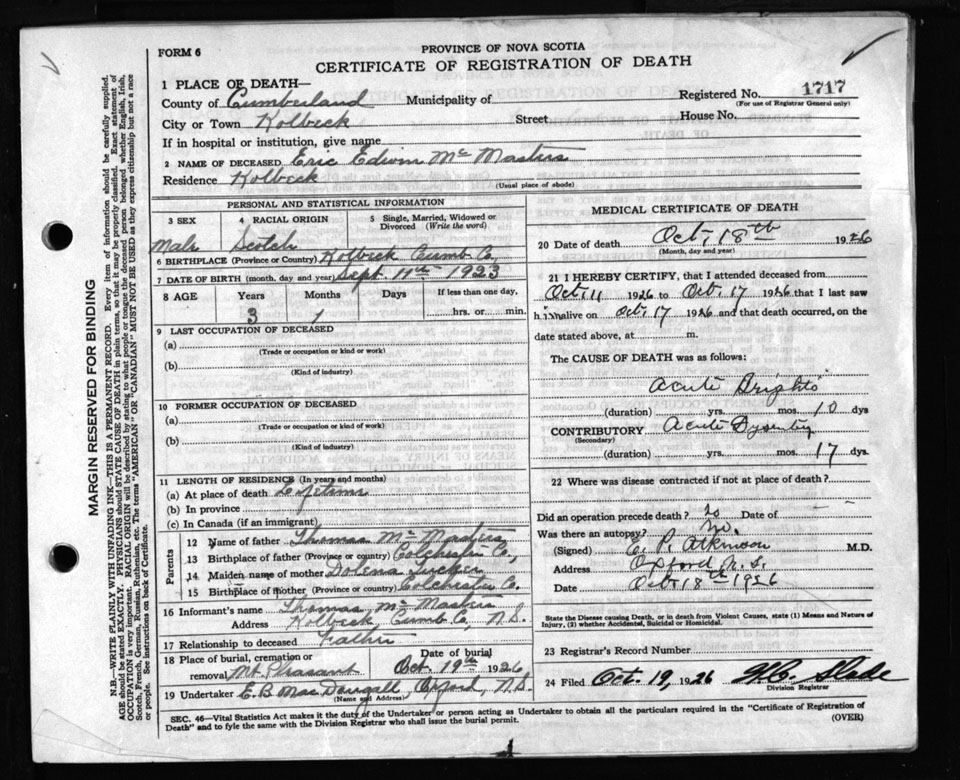 FORM 6
PROVINCE OF NOVA SCOTIA
CERTIFICATE OF REGISTRATION OF DEATH
1 PLACE OF DEATH—
Registered No. 1717
(For use of Registrar General only)
County of Cumberland Municipality of
City or Town Kolbeck Street House No.
If in hospital or institution, give name
2 NAME OF DECEASED Eric Edwin McMasters
Residence Kolbeck
(Usual place of abode)
PERSONAL AND STATISTICAL INFORMATION
3 SEX
Male
4 RACIAL ORIGIN
Scotch
5 Single, Married, Widowed or Divorced (Write the word)
6 BIRTHPLACE (Province or Country) Kolbeck Cumb Co.,
7 DATE OF BIRTH (month, day and year) Sept. 11th 1923
8 AGE Years Months Days If less than one day,
3 1 hrs. or min.
9 LAST OCCUPATION OF DECEASED
(a)
(Trade or occupation or kind or work)
(b)
(Kind of industry)
10 FORMER OCCUPATION OF DECEASED
(a)
(Trade or occupation or kind of work)
(b)
(Kind of industry)
11 LENGTH OF RESIDENCE (In years and months)
(a) At place of death Lifetime
(b) In province
(c) In Canada (if an immigrant)
Parents
12 Name of father Thomas McMasters
13 Birthplace of father (Province or country) Colchester Co.,
14 Maiden name of mother Dolena Tucker
15 Birthplace of mother (Province or country) Colchester Co.
16 Informant's name Thomas McMasters
Address Kolbeck, Cumb Co, N.S.
17 Relationship to deceased Father
18 Place of burial, cremation or removal Mt. Pleasant
Date of burial
Oct 19th 1926
19 Undertaker E. B. MacDougall Oxford, N.S.
(Name and Address)
MEDICAL CERTIFICATE OF DEATH
20 Date of death Oct 18th 1926
(Month, day and year)
21 I HEREBY CERTIFY, that I attended deceased from
Oct. 11 1926 to Oct. 17 1926 that I last saw
him alive on Oct 17 1926 and that death occurred, on the
date stated above, at m.
The CAUSE OF DEATH was as follows:
Acute Brights
(duration) yrs. mos. 10 dys
CONTRIBUTORY Acute Dysentery
(Secondary)
(duration) yrs. mos. 17 dys.
22 Where was disease contracted if not at place of death?
Did an operation precede death? no Date of
Was there an autopsy? no.
(Signed) E. P. Atkinson M.D.
Address Oxford N.S.
Date Oct 18th 1926
State the Disease causing Death, or in death from Violent Causes, state (1) Means and Nature of
Injury, (2) whether Accidental, Suicidal or Homicidal.
23 Registrar's Record Number
24 Filed Oct. 19, 1926 Slade
Division Registrar
SEC. 46—Vital Statistics Act makes it the duty of the Undertaker or person acting as Undertaker to obtain all the particulars required in the "Certificate of Registration of
Death" and to fyle the same with the Division Registrar who shall issue the burial permit.
(OVER)
MARGIN RESERVED FOR BINDING
N.B.—WRITE PLAINLY WITH UNFADING INK—THIS IS A PERMANENT RECORD. Every item of information should be carefully supplied.
AGE should be stated EXACTLY. PHYSICIANS should STATE CAUSE OF DEATH in plain terms, so that it may be properly classified. Exact statement of
OCCUPATION is very important. RACIAL ORIGIN will be described by stating to what people or tongue the deceased person belonged whether English, Irish,
Scotch, French, German, Russian, Ruthenian, etc. The terms "AMERICAN" OR "CANADIAN" MUST NOT BE USED as they express citizenship but not a race
or people. See instructions on back of Certificate.